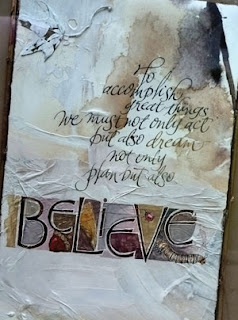 To
accomplish
great things
we must not only act
but also dream
not only
plan but also
BELiEVE